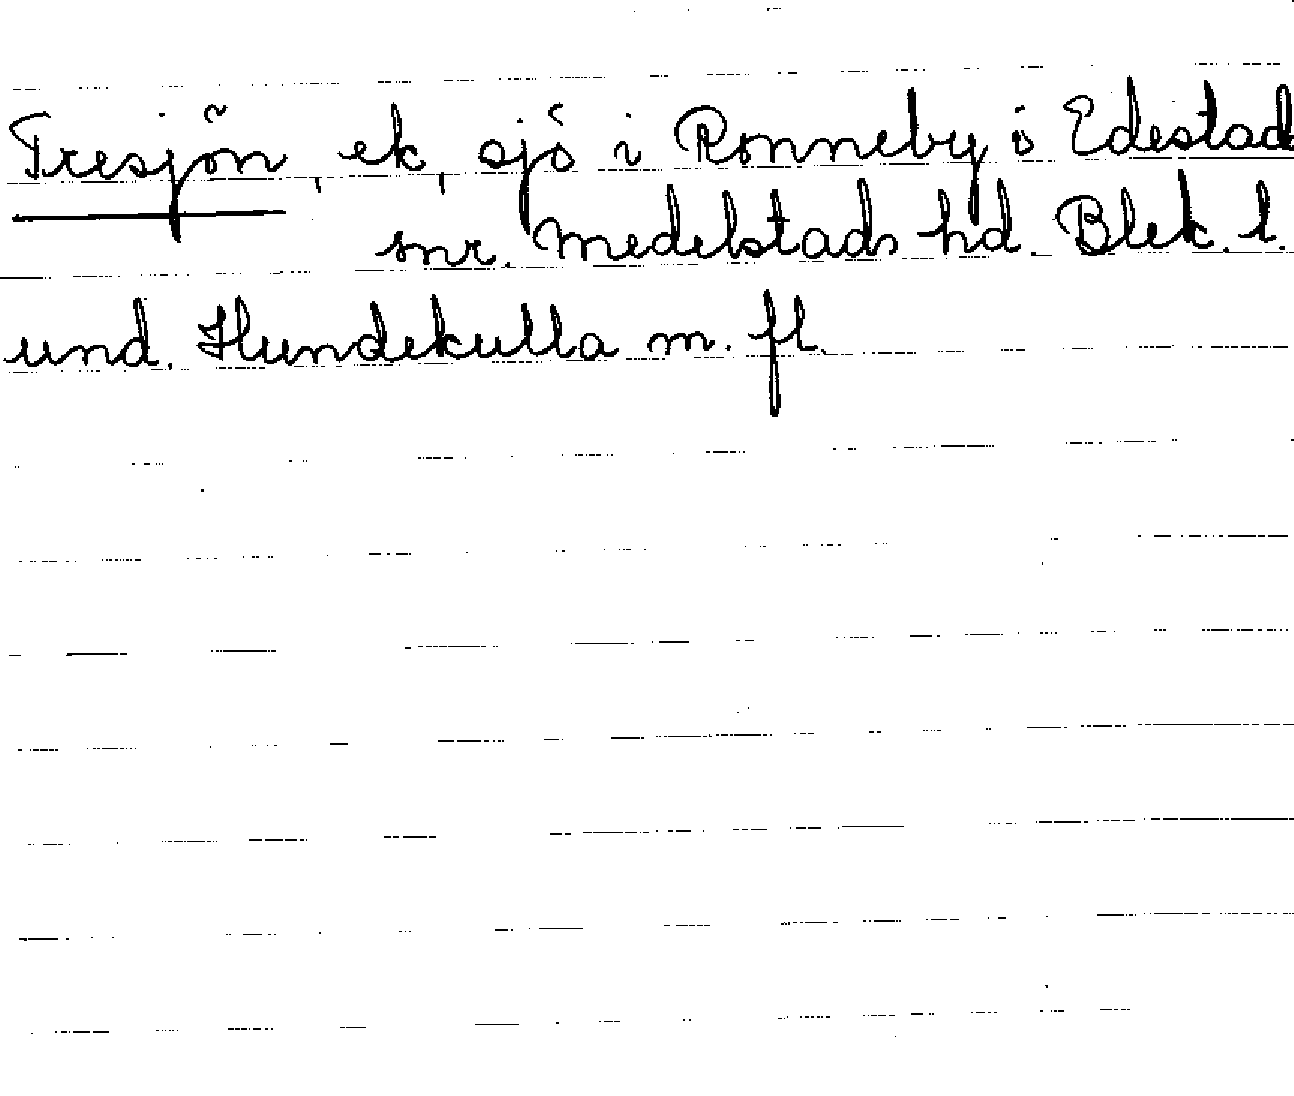 Tresjön, ek, sjö i Ronneby o Edestad
snr. Medelstads hd. Blek. l.
und. Hundekulla m. fl.